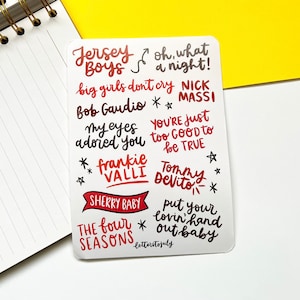 Jersey
Boys
oh, what
a night!
big girls don't cry
NICK
MASSI
Bob Gaudio
my eyes
adored you
YOU'RE JUST
TOO GOOD TO
BE TRUE
frankie
VALLI
Tommy
DeVito
SHERRY BABY
put your
lovin' hand
out, baby
THE four
SEASONS
letteritojuly